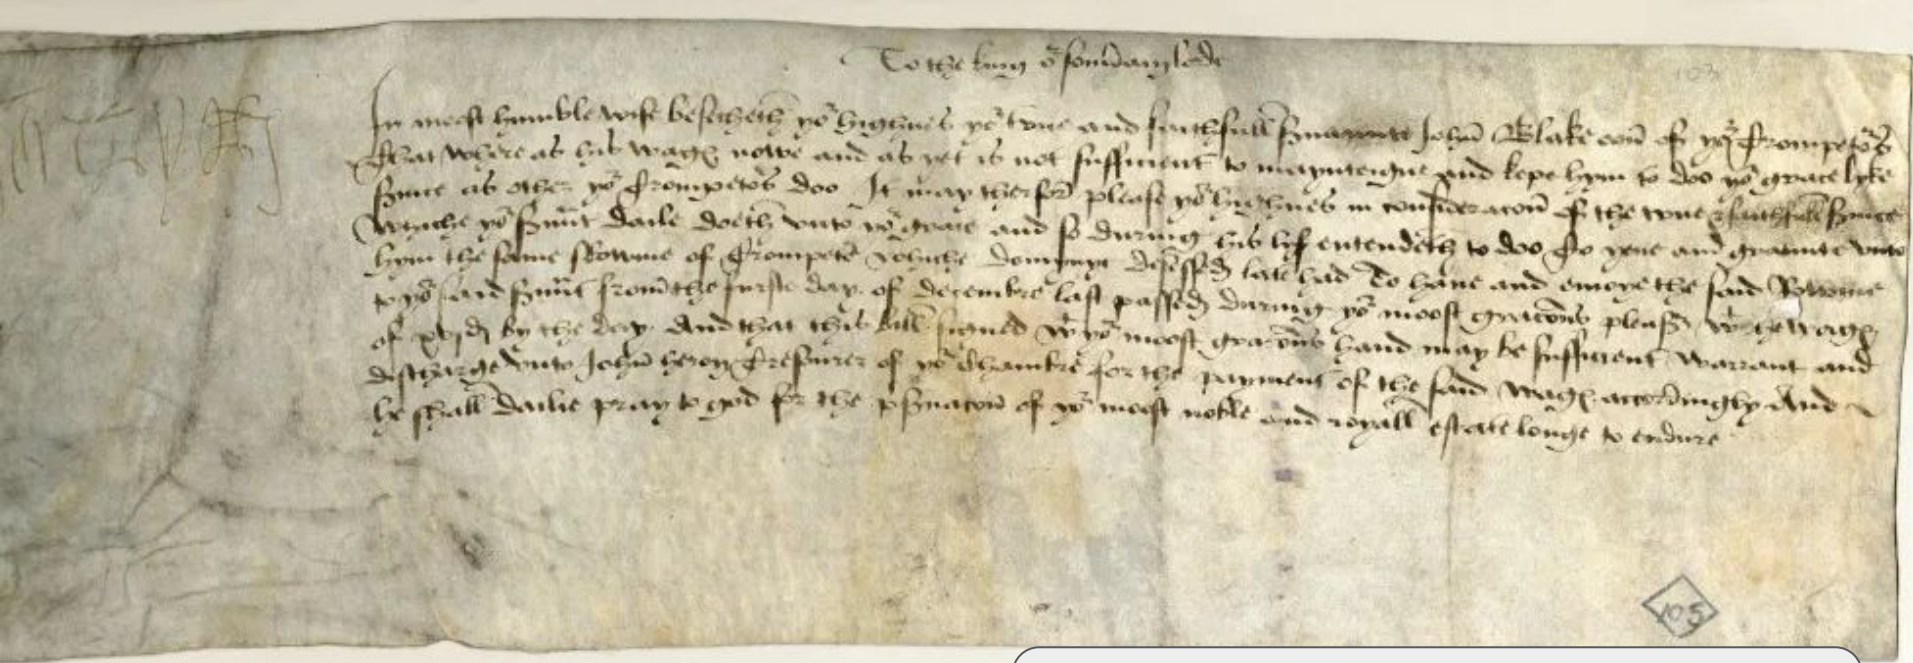 To the king or souuayn lorde
HENRY R
In moost humble wise besecheth yor highnes yor true and faithfull seruaunte John Blake oon of yor Trompetors
That where as his wagℯ nowe and as yet is not sufficient to maynteigne and kepe hym to doo yor grace lyke
s'uice as other yor Trompetors doo It may therfor please yor highnes in consideracon of the true & faithfull s'uice
whiche yor s'uut daile doeth vnto yor grace and so during his lyf entendeth to doo To yeue and graunte vnto
hym the same Rowme of Trompete whiche Domynyc decessed late had To haue and enioye the said Rowme
to yor said s'uut from the furste day of Decembre last passed during yor moost gracious pleasr wt the wagℯ
of xvjd by the day And that this bill signed wt yor moost gracious hand may be sufficient warrant and
discharge vnto John heron Tresourer of yor Chambre for the payment of the said wagℯ accordingly And
he shall dailie pray to god for the p'suacon of yor moost noble and royall estate longe to endure
105